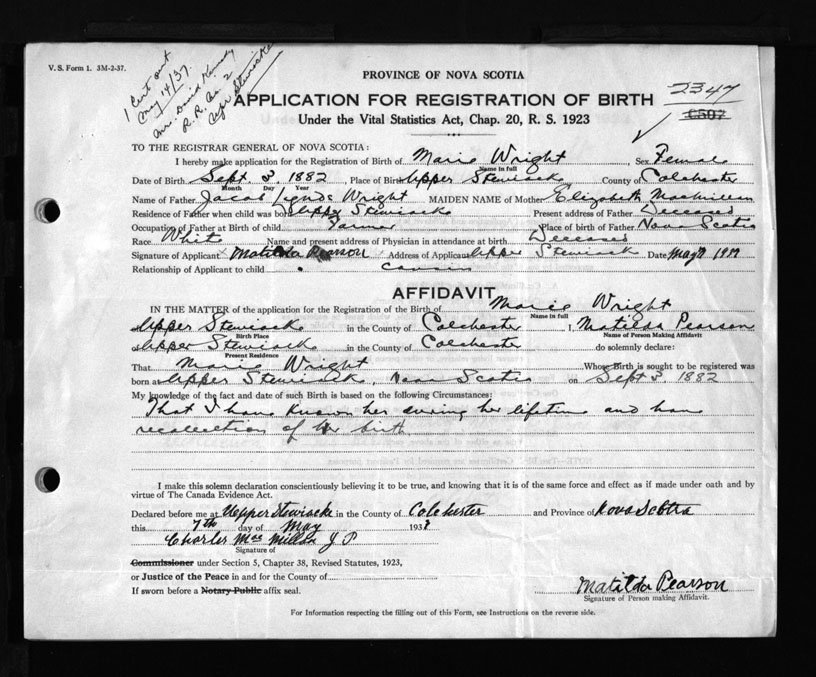 V. S. Form 1. 3M-2-37.
1 Cert out
May 14/37.
Mrs. David Kennedy
R. R. No. 2
Upper Stewiacke
PROVINCE OF NOVA SCOTIA
2347
APPLICATION FOR REGISTRATION OF BIRTH
Under the Vital Statistics Act, Chap. 20, R. S. 1923
TO THE REGISTRAR GENERAL OF NOVA SCOTIA:
I hereby make application for the Registration of Birth of Marie Wright Sex Female
Name in full
Date of Birth Sept 3. 1882 Place of Birth Upper Stewiack County of Colchester
Month Day Year
Name of Father Jacob Wright MAIDEN NAME of Mother Elizabeth MacMillan
Residence of Father when child was born Upper Stewiack Present address of Father Deceased
Occupation of Father at Birth of child Farmer Place of birth of Father Nova Scotia
Race White Name and present address of Physician in attendance at birth Deceased
Signature of Applicant Matilda Pearson Address of Applicant Upper Stewiack Date May 7 1937
Relationship of Applicant to child cousin
AFFIDAVIT
IN THE MATTER of the application for the Registration of the Birth of Marie Wright
Name in full
Upper Stewiack in the County of Colchester I, Matilda Pearson
Birth Place Name of Person Making Affidavit
of Upper Stewiack in the County of Colchester do solemnly declare:
Present Residence
That Marie Wright Whose Birth is sought to be registered was
born at Upper Stewiack, Nova Scotia on Sept 3. 1882
My knowledge of the fact and date of such Birth is based on the following Circumstances:
That I have known her during her lifetime and have
recollection of her birth
I make this solemn declaration conscientiously believing it to be true, and knowing that it is of the same force and effect as if made under oath and by
virtue of The Canada Evidence Act.
Declared before me at Upper Stewiacke in the County of Colchester and Province of Nova Scotia
this 7th day of May 193
Charles MacMillan J P
Signature of
Commissioner under Section 5, Chapter 38, Revised Statutes, 1923,
or Justice of the Peace in and for the County of
If sworn before a Notary Public affix seal.
Matilda Pearson
Signature of Person making Affidavit.
For Information respecting the filling out of this Form, see Instructions on the reverse side.